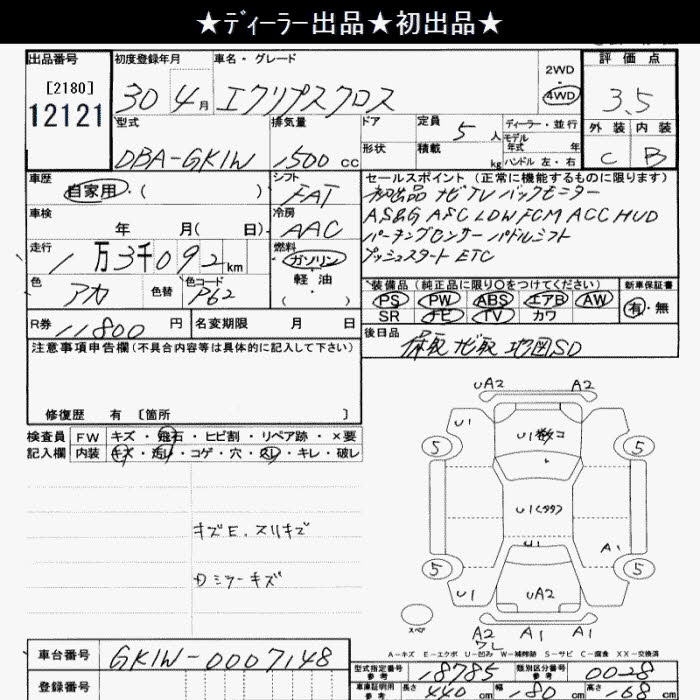 ★ディーラー出品★初出品★
出品番号 初度登録年月 車名・グレード 2WD 評価点
[2180] 30 4月 エクリプスクロス 4WD 3.5
12121 型式 排気量 ドア 定員 5人 ディーラー・並行 外装 内装
モデル年式 年
DBA-GK1W 1500cc 形状 積載 kg ハンドル 左・右 C B
車歴 シフト セールスポイント (正常に機能するものに限ります)
自家用・( ) FAT 初出品 ナビ TV バックモニター
車検 冷房 AS&G ASC LDW FCM ACC HUD
年 月( 日) AAC パーキングセンサー パドルシフト
走行 燃料 プッシュスタート ETC
1万3千092km ガソリン
色 色替 色コード 軽油 装備品 (純正品に限り○をつけてください) 新車保証書
アカ P62 ( ) PS PW ABS エアB AW 有・無
R券 SR ナビ TV カワ
11800円 名変期限 月 日 後日品
注意事項申告欄(不具合内容等は具体的に記入して下さい) 保取 ナビ取 地図SD
修復歴 有 [箇所 ]
検査員 FW キズ・飛石・ヒビ割・リペア跡・×要
記入欄 内装 キズ・汚れ・コゲ・穴・スレ・キレ・破レ
UA2 A2
U1
U1数コ
5 5
キズE.スリキズ
U1
A1
5 5
U1 UA2
スペア
A2 A1 A1
A-キズ E-エクボ U-凹み W-補修跡 S-サビ C-腐食 XX-交換済
車台番号 GK1W-0007148 型式指定番号 参考 18785 類別区分番号 参考 0028
登録番号 車庫証明用 参考 長さ 440cm 幅 180cm 高さ 168cm